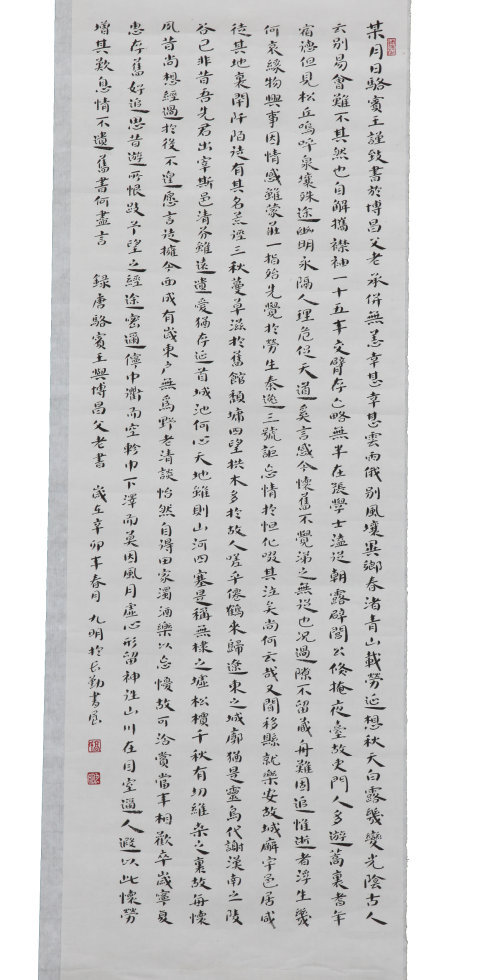 某月日駱賓王謹致書於博昌父老承併無恙幸甚幸甚雲雨俄別風壤異鄉春渚青山載勞延想秋天白露幾變光陰古人
云別易會難不其然也自解攜襟袖一十五年交臂存亡略無半在張學士溘從朝露辟閭公倏掩夜臺故吏門人多遊蒿里耆年
宿德但見松丘嗚呼泉壤殊途幽明永隔人理危促天道奚言感今懷舊不覺涕之無從也況過隙不留藏舟難固追惟逝者浮生幾
何哀緣物興事因情感雖蒙莊一指殆先覺於勞生秦逸三號詎忘情於怛化啜其泣矣尚何云哉又聞移縣就樂安故城廨宇邑居咸
徙其地里閈阡陌徒有其名荒涇三秋蔓草滋於舊館頹墉四望拱木多於故人嗟乎僊鶴來歸遼東之城郭猶是靈烏代謝漢南之陵
谷已非昔吾先君出宰斯邑清芬雖遠遺愛猶存延首城池何心天地雖則山河四塞是稱無棣之墟松檟千秋有切維桑之裏故每懷
夙昔尚想經過於役不遑願言徒擁今西成有歲東戶無為野老清談怡然自得田家濁酒樂以忘憂故可洽賞當年相歡卒歲寧夏
惠存舊好追思昔遊所恨跂予望之經途密邇佇巾衢而空軫巾下澤而莫因風月虛心形留神往山川在目室邇人遐以此懷勞
增其歎息情不遺舊書何盡言　錄唐駱賓王與博昌父老書　歲在辛卯年春月　九明於長勤書屋